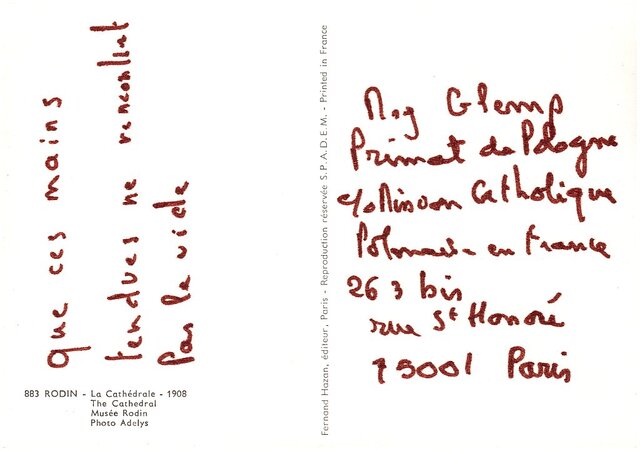 que ces mains
tendues ne rencontrent
pas le vide
883 RODIN - La Cathédrale - 1908
The Cathedral
Musée Rodin
Photo Adelys
Fernand Hazan, éditeur, Paris - Reproduction réservée S.P.A.D.E.M. - Printed in France
Mgr Glemp
Primat de Pologne
c/o Mission Catholique
Polonaise en France
263 bis
rue St Honoré
75001 Paris